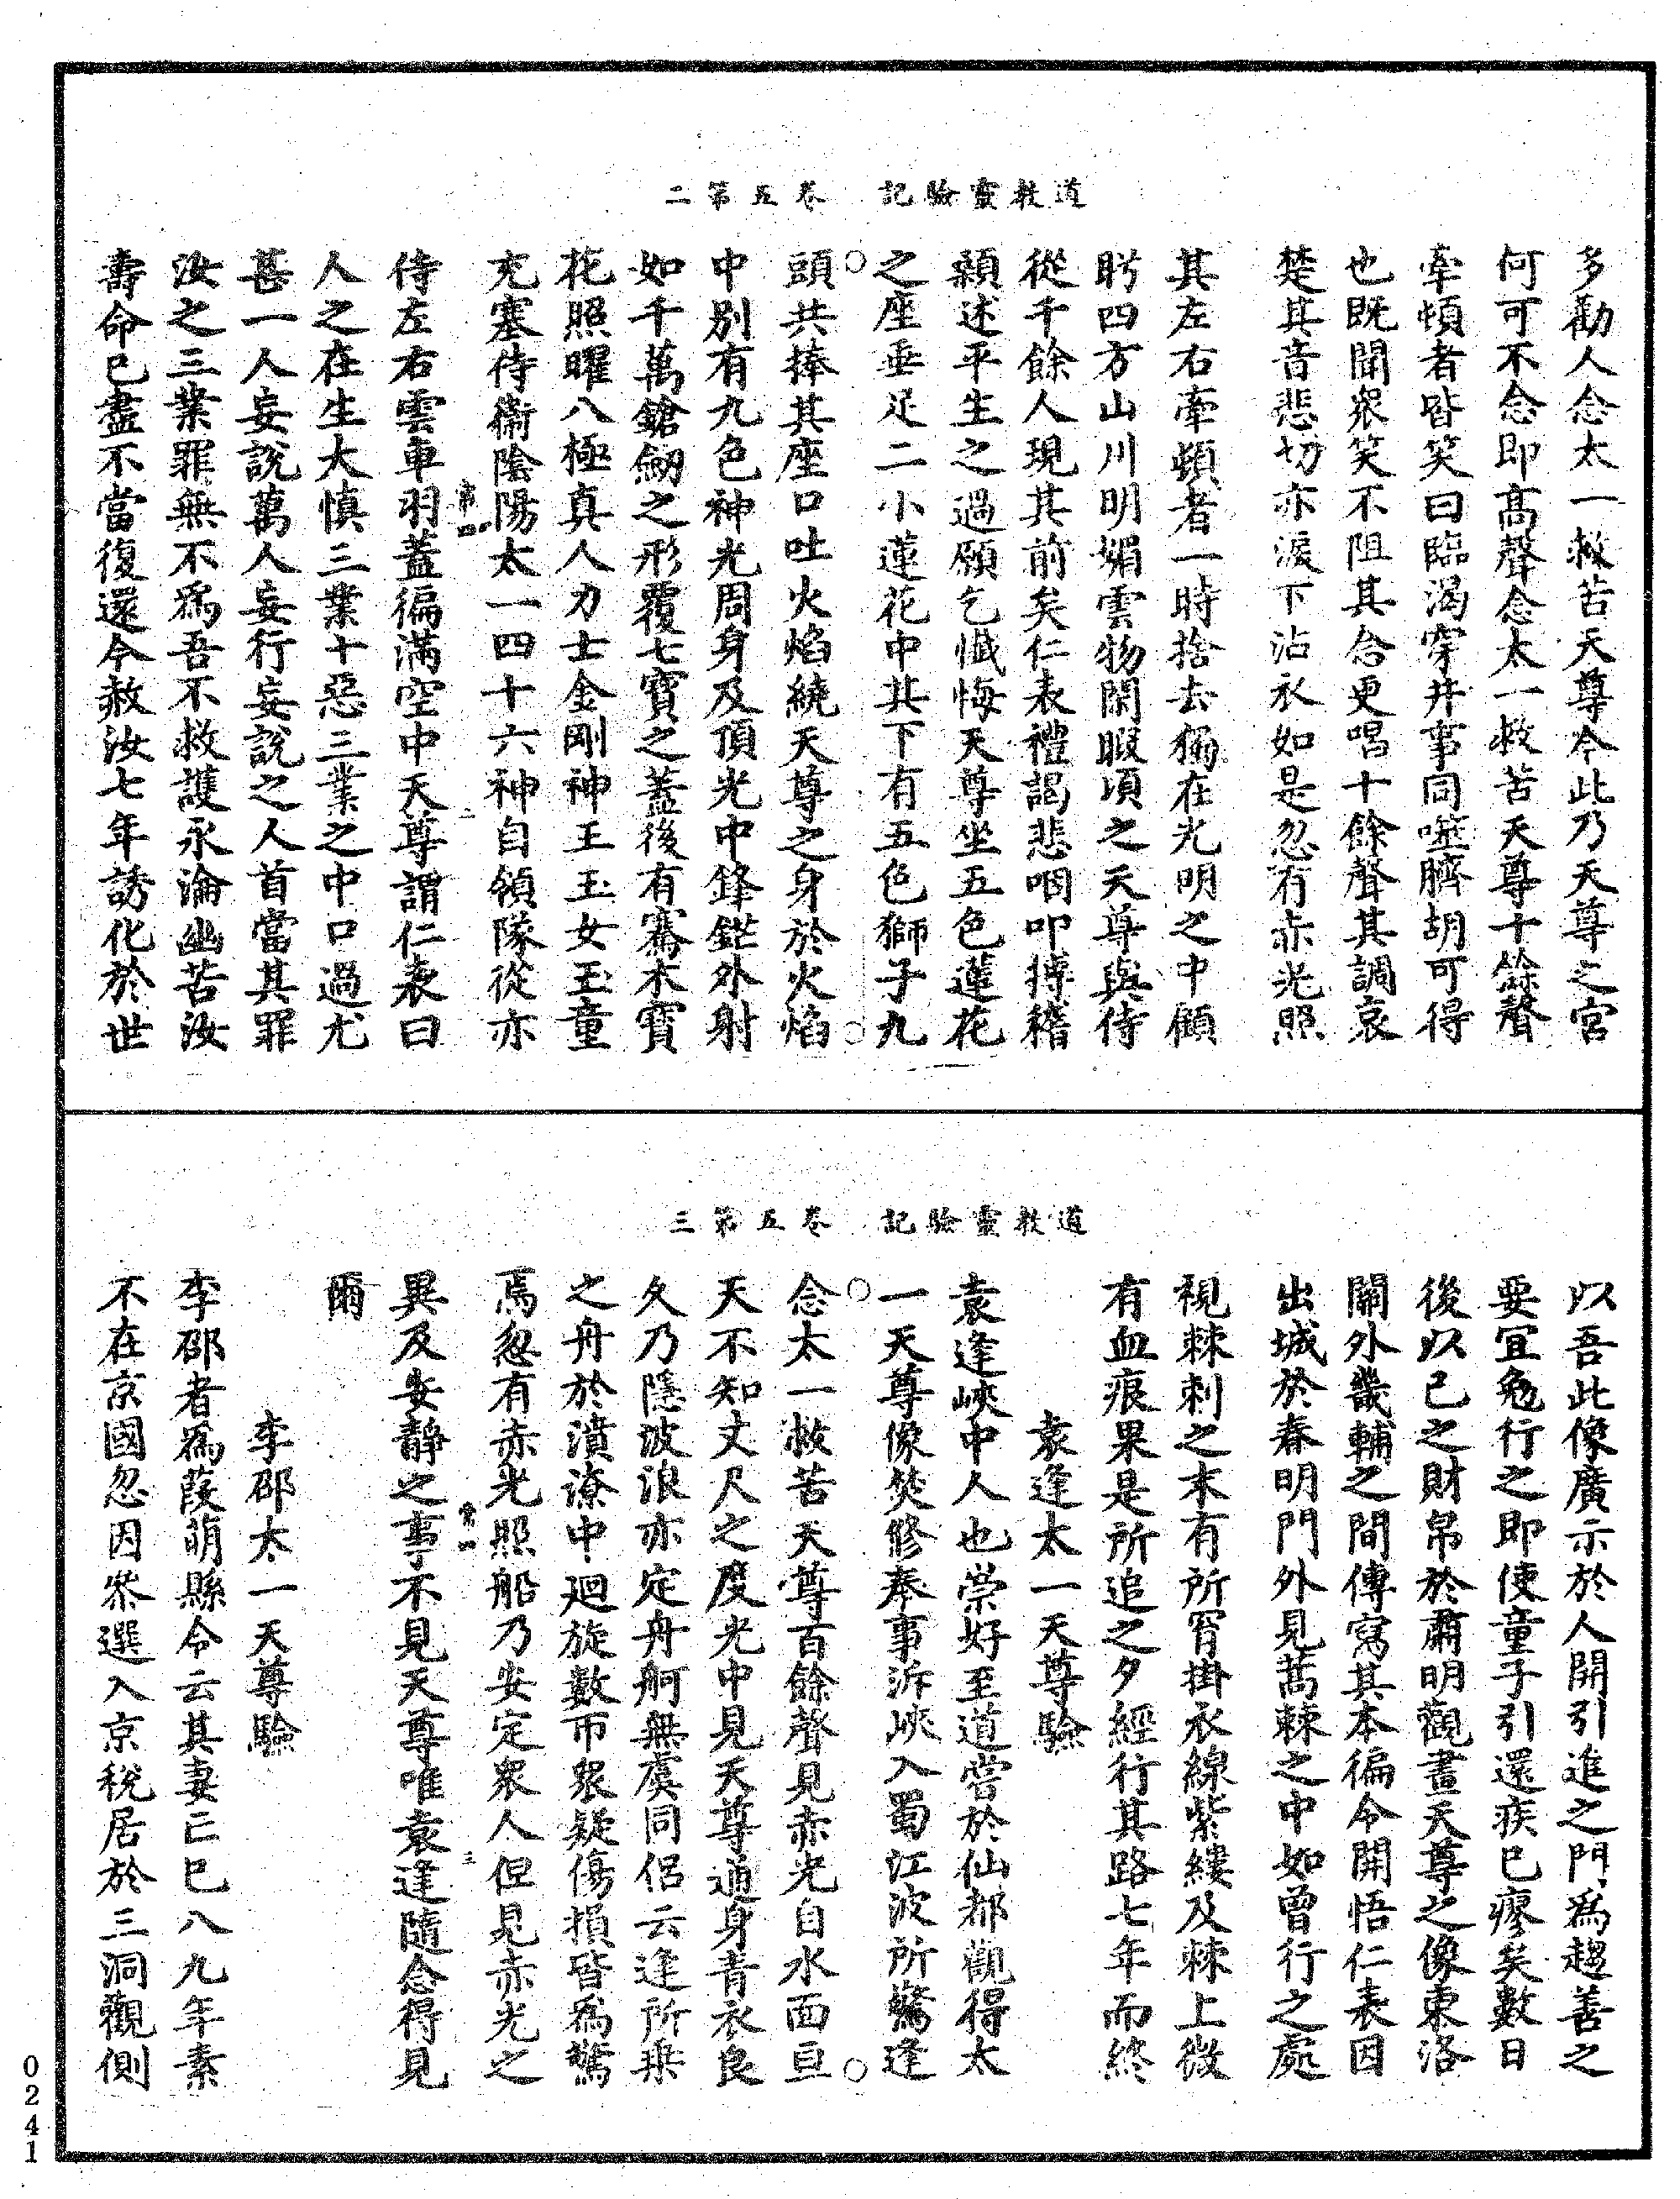 道教靈驗記　卷五第二
多勸人念太一救苦天尊今此乃天尊之宮
何可不念即高聲念太一救苦天尊十餘聲
牽頓者皆笑曰臨渴穿井事同噬臍胡可得
也既聞衆笑不阻其念更唱十餘聲其調哀
楚其音悲切亦淚下沾衣如是忽有赤光照
其左右牽頓者一時捨去獨在光明之中顧
眄四方山川明媚雲物閑暇頃之天尊與侍
從千餘人現其前矣仁表禮謁悲咽叩搏稽
顙述平生之過願乞懺悔天尊坐五色蓮花
之座垂足二小蓮花中其下有五色獅子九
頭共捧其座口吐火焰繞天尊之身於火焰
中別有九色神光周身及頂光中鋒鋩外射
如千萬鎗劒之形覆七寶之蓋後有騫木寶
花照曜八極真人力士金剛神王玉女玉童
充塞侍衞陰陽太一四十六神自領隊從亦
侍左右雲車羽蓋徧滿空中天尊謂仁表曰
人之在生大慎三業十惡三業之中口過尤
甚一人妄說萬人妄行妄說之人首當其罪
汝之三業罪無不爲吾不救護永淪幽苦汝
壽命已盡不當復還今赦汝七年誘化於世
道教靈驗記　卷五第三
以吾此像廣示於人開引進之門爲趨善之
要宜勉行之即使童子引還疾已瘳矣數日
後以己之財帛於肅明觀畫天尊之像東洛
關外畿輔之間傳寫其本徧令開悟仁表因
出城於春明門外見蒿棘之中如曾行之處
視棘刺之末有所罥掛衣線紫縷及棘上微
有血痕果是所追之夕經行其路七年而終
袁逢太一天尊驗
袁逢峽中人也崇好至道嘗於仙都觀得太
一天尊像焚修奉事泝峽入蜀江波所驚逢
念太一救苦天尊百餘聲見赤光自水面亘
天不知丈尺之度光中見天尊通身青衣良
久乃隱波浪亦定舟舸無虞同侶云逢所乘
之舟於濆潦中迴旋數帀衆疑傷損皆爲驚
焉忽有赤光照船乃安定衆人但見赤光之
異及安靜之事不見天尊唯袁逢隨念得見
爾
李邵太一天尊驗
李邵者爲葭萌縣令云其妻亡已八九年素
不在京國忽因叅選入京稅居於三洞觀側
0241